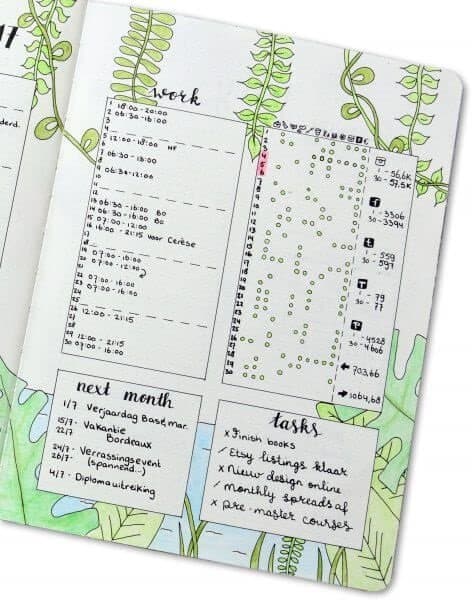 17
derd.
work
1 18:00-20:00
2 06:30-16:00
3
4
5 12:00-18:00 HF
6
7 06:30-16:00
8
9 06:30-12:00
10
11
12
13 06:30-16:00 BO
14 06:30-16:00 Bo
15 07:00-12:00
16 16:00-21:15 voor Cerèse
17
18
19 07:00-16:00
20 07:00-12:00
21
22 07:00-16:00
23 07:00-16:00
24
25
26 12:00-21:15
27
28
29 12:00-21:15
30 07:00-16:00
2
3
4
5
6
7
8
9
10
11
12
13
14
15
16
17
18
19
20
21
22
23
24
25
26
27
28
29
30
1 - 56,6K
30 - 57.5K
f
1 - 3306
30 - 3394
t
1 - 559
30 - 597
1 - 79
30 - 77
1 - 4528
30 - 4666
← 703,66
→ 1064,68
next month
1/7 Verjaardag Base, mar.
15/7- Vakantie
22/7 Bordeaux
24/7- Verrassingsevent
26/7- (spannend..)
4/7- Diplomauitreiking
tasks
x Finish books
/ Etsy listings klaar
x Nieuw design online
/ Monthly spreads af
x pre-master courses